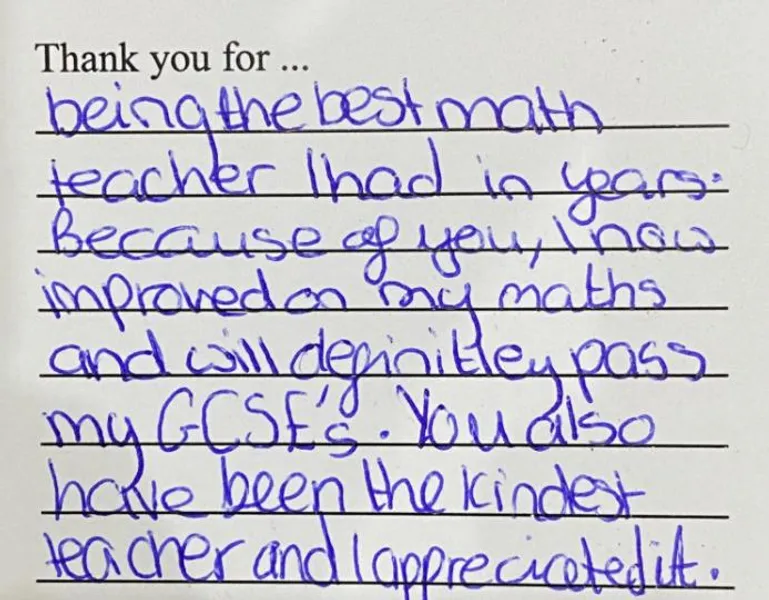 Thank you for ...
being the best math
teacher I had in years.
Because of you, I now
improved on my maths
and will definitley pass
my GCSE's. You also
have been the kindest
teacher and I appreciated it.